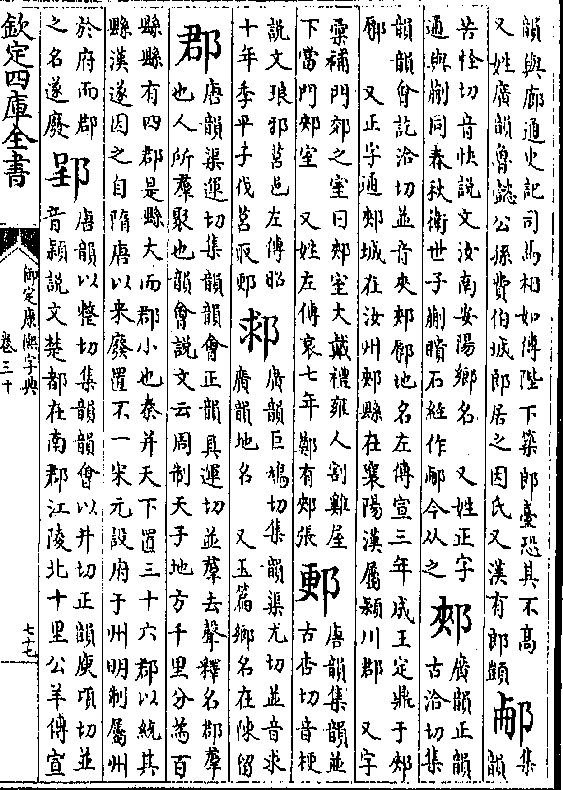 韻與廊通史記司馬相如傳陛下築郎臺恐其不高
又姓廣韻魯懿公孫費伯城郎居之因氏又漢有郎顗
郙集韻
苦怪切音快說文汝南安陽鄉名 又姓正字
通與蒯同春秋衛世子蒯聵石經作𨛖今从之
郟廣韻正韻古洽切集
韻韻會訖洽切並音夾郟鄏地名左傳宣三年成王定鼎于郟
鄏 又正字通郟城在汝州郟縣在襄陽漢屬潁川郡 又字
彙補門郊之室曰郟室大戴禮雍人割雞屋
下當門郟室 又姓左傳哀七年鄭有郟張
郠唐韻集韻並古杏切音梗
說文琅邪莒邑左傳昭
十年季平子伐莒取郠
郣廣韻巨鳩切集韻渠尤切並音求
廣韻地名 又玉篇鄉名在陳留
郡唐韻渠運切集韻韻會正韻具運切並羣去聲釋名郡羣
也人所羣聚也韻會說文云周制天子地方千里分爲百
縣縣有四郡是縣大而郡小也秦并天下置三十六郡以統其
縣漢遂因之自隋唐以來廢置不一宋元設府于州明制屬州
於府而郡
之名遂廢
郢唐韻以整切集韻韻會以井切正韻庾頃切並
音穎說文楚都在南郡江陵北十里公羊傳宣
欽定四庫全書
御定康熙字典
卷三十
七七